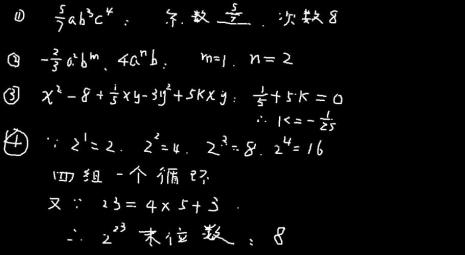 ① 5/7 ab³c⁴: 系数 5/7. 次数8
② -2/3 a²bᵐ, 4aⁿb, m=1. n=2
③ x²-8+1/5xy-3y²+5kxy: 1/5+5k=0
∴ k=-1/25
④ ∵ 2¹=2. 2²=4. 2³=8. 2⁴=16
四组一个循环
又∵ 23=4×5+3.
∴ 2²³末位数: 8